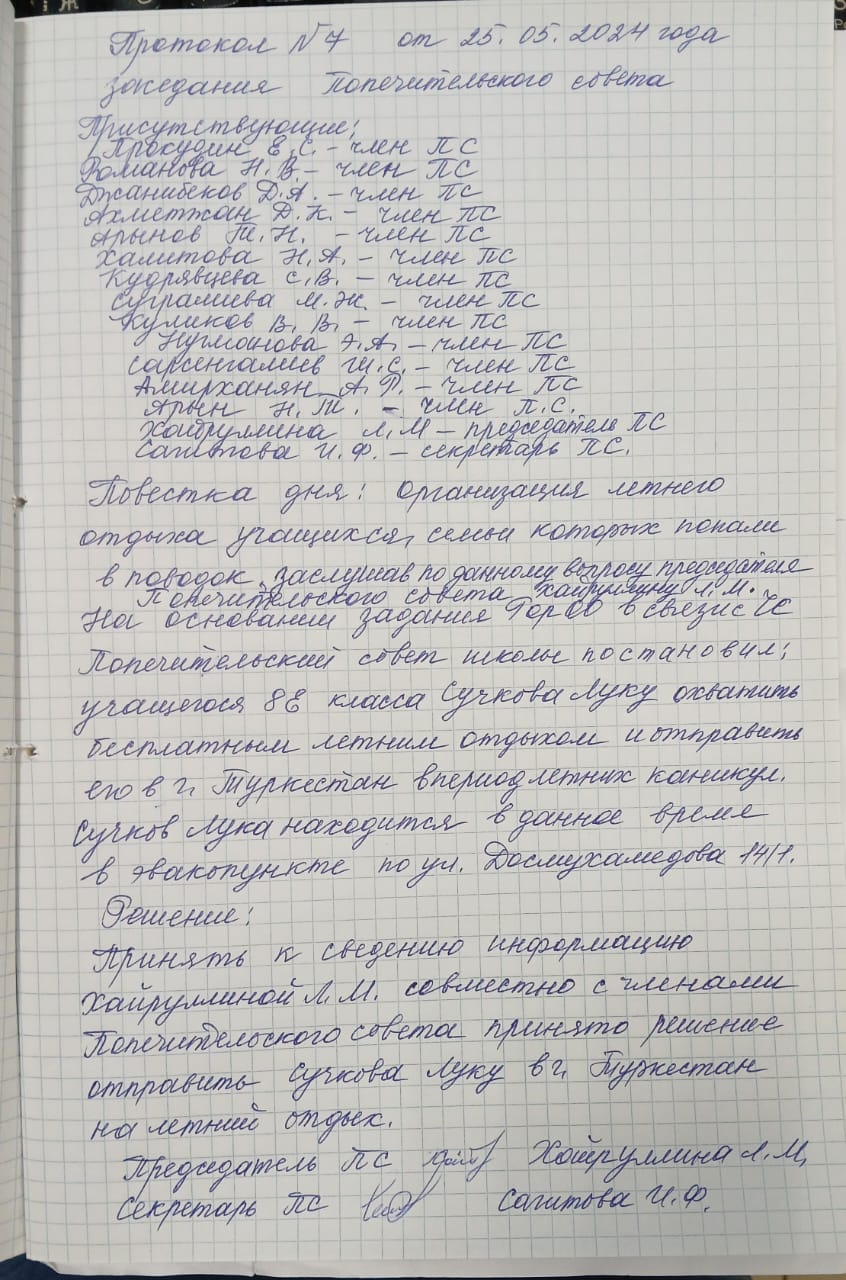 Протокол №7 от 25.05.2024 года
заседания Попечительского совета
Присутствующие:
Прокудин Е.С. – член ПС
Романова Н.В. – член ПС
Джанибеков Д.А. – член ПС
Ахметжан Д.К. – член ПС
Арынов Т.Н. – член ПС
Халитова Н.А. – член ПС
Кудрявцева С.В. – член ПС
Суграшева М.Ж. – член ПС
Куликов В.В. – член ПС
Нугманова Э.А. – член ПС
Сарсенгалиев Ш.С. – член ПС
Амирханян А.Р. – член ПС
Арын Н.Т. – член П.С.
Хайруллина Л.М – председатель ПС
Сагитова И.Ф. – секретарь ПС.
Повестка дня: Организация летнего
отдыха учащихся, семьи которых попали
в поводок, заслушав по данному вопросу председателя
Попечительского совета Хайруллину Л.М.
На основании задания ГорОО в связи с ЧС
Попечительский совет школы постановил:
учащегося 8Е класса Сучкова Луку охватить
бесплатным летним отдыхом и отправить
его в г. Туркестан в период летних каникул.
Сучков Лука находится в данное время
в эвакопункте по ул. Досмухамедова 14/1.
Решение:
Принять к сведению информацию
Хайруллиной Л.М. совместно с членами
Попечительского совета принято решение
отправить Сучкова Луку в г. Туркестан
на летний отдых.
Председатель ПС Хайруллина Л.М,
Секретарь ПС Сагитова И.Ф.